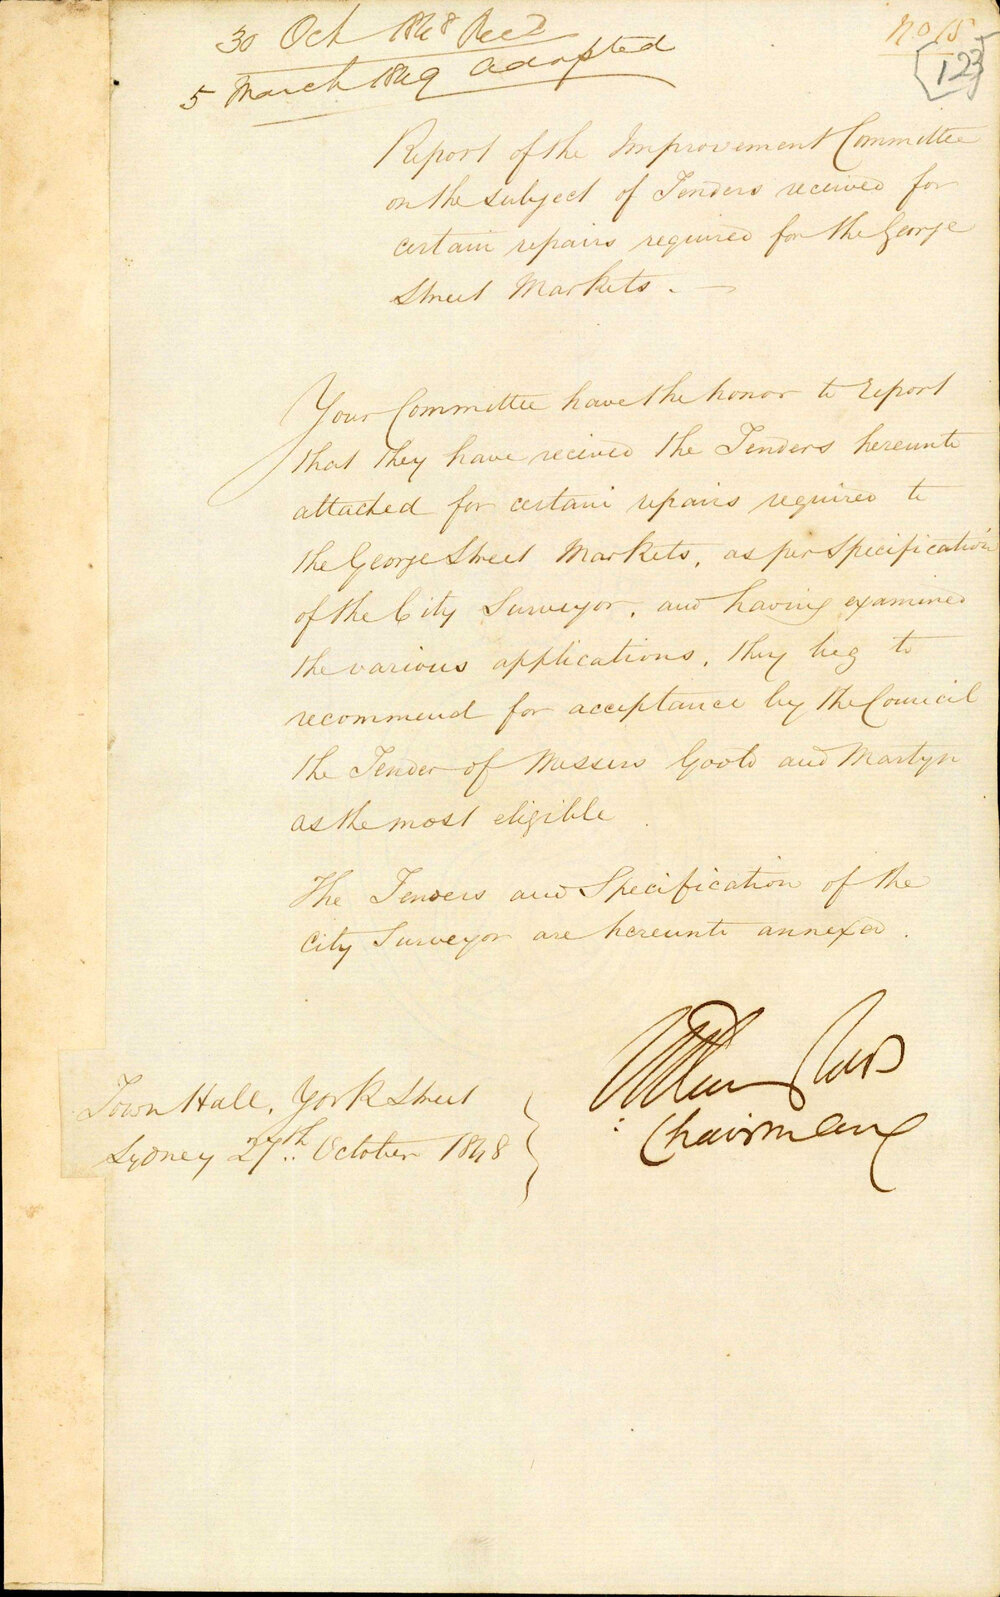 30 Oct 1848 Recd
5 March 1849 adopted
No 15
123
Report of the Improvement Committee
on the subject of Tenders received for
certain repairs required for the George
Street Markets. —
Your Committee have the honor to report
that they have received the Tenders hereunto
attached for certain repairs required to
the George Street Markets, as per Specification
of the City Surveyor, and having examined
the various applications, they beg to
recommend for acceptance by the Council
the Tender of Messers Goold and Martyn
as the most eligible
The Tenders and Specification of the
City Surveyor are hereunto annexed.
Town Hall, York Street
Sydney 27th. October 1848
Chairman